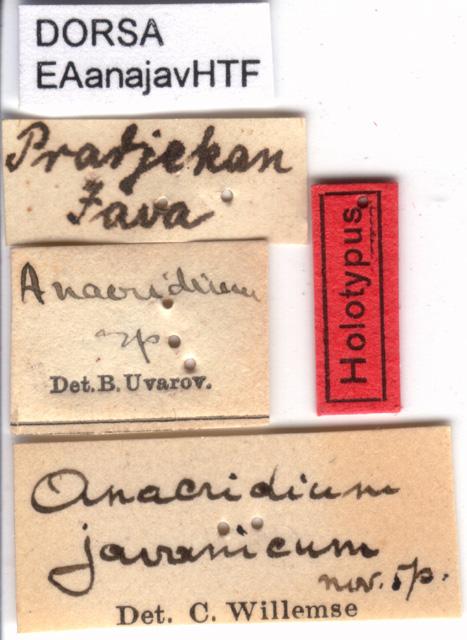 DORSA
EAanajavHTF
Pradjekan
Java
Holotypus
Anacridium
sp
Det. B. Uvarov.
Anacridium
javanicum
nov. sp.
Det. C. Willemse